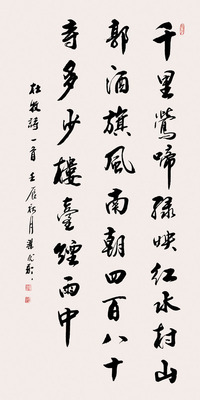 千里鶯啼綠映紅水村山
郭酒旗風南朝四百八十
寺多少樓臺煙雨中
杜牧詩一首 壬辰秋月